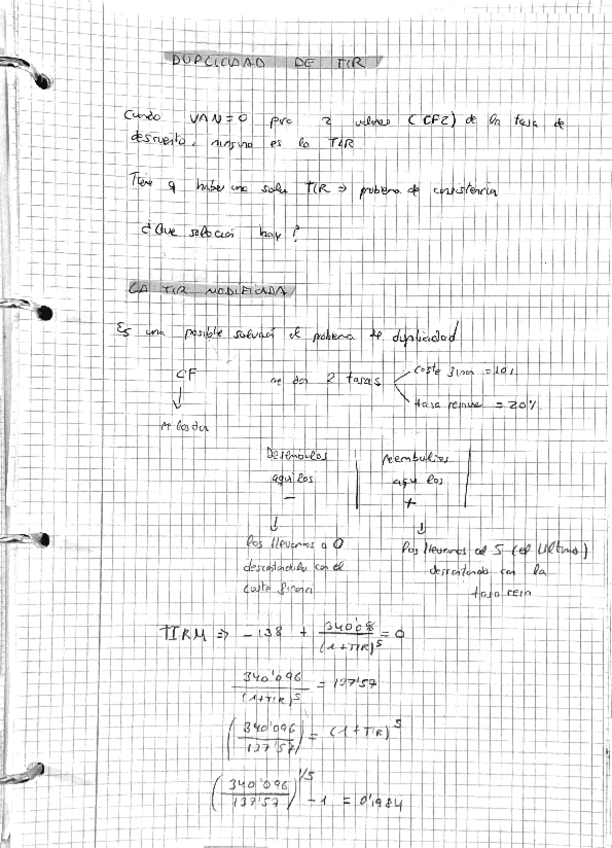 DUPLICIDAD DE TIR
Cuando VAN=0 para 2 valores (CFZ) de la tasa de
descuento, ninguno es la TIR
Tiene q haber una sola TIR ⇒ problema de consistencia
¿Que solución hay?
LA TIR MODIFICADA
Es una posible solución el problema de duplicidad
CF me dan 2 tasas coste finan = 10%
tasa reinver = 20%
↓
Desembolsos | reembolsos |
aquí los | aqu los |
− | +
↓ ↓
los llevamos a 0 los llevamos al 5 (el último)
descontandolos con el descontando con la
coste financi tasa rein
TIRM ⇒ −138 + 340'096/(1+TIR)^5 = 0
340'096/(1+TIR)^5 = 137'57
(340'096/137'57) = (1+TIR)^5
(340'096/137'57)^1/5 − 1 = 0'1984